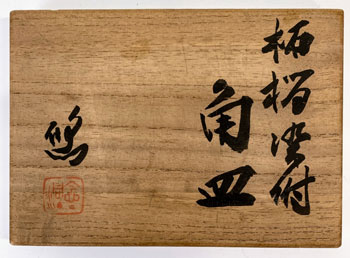 柘榴染付
角皿
悠